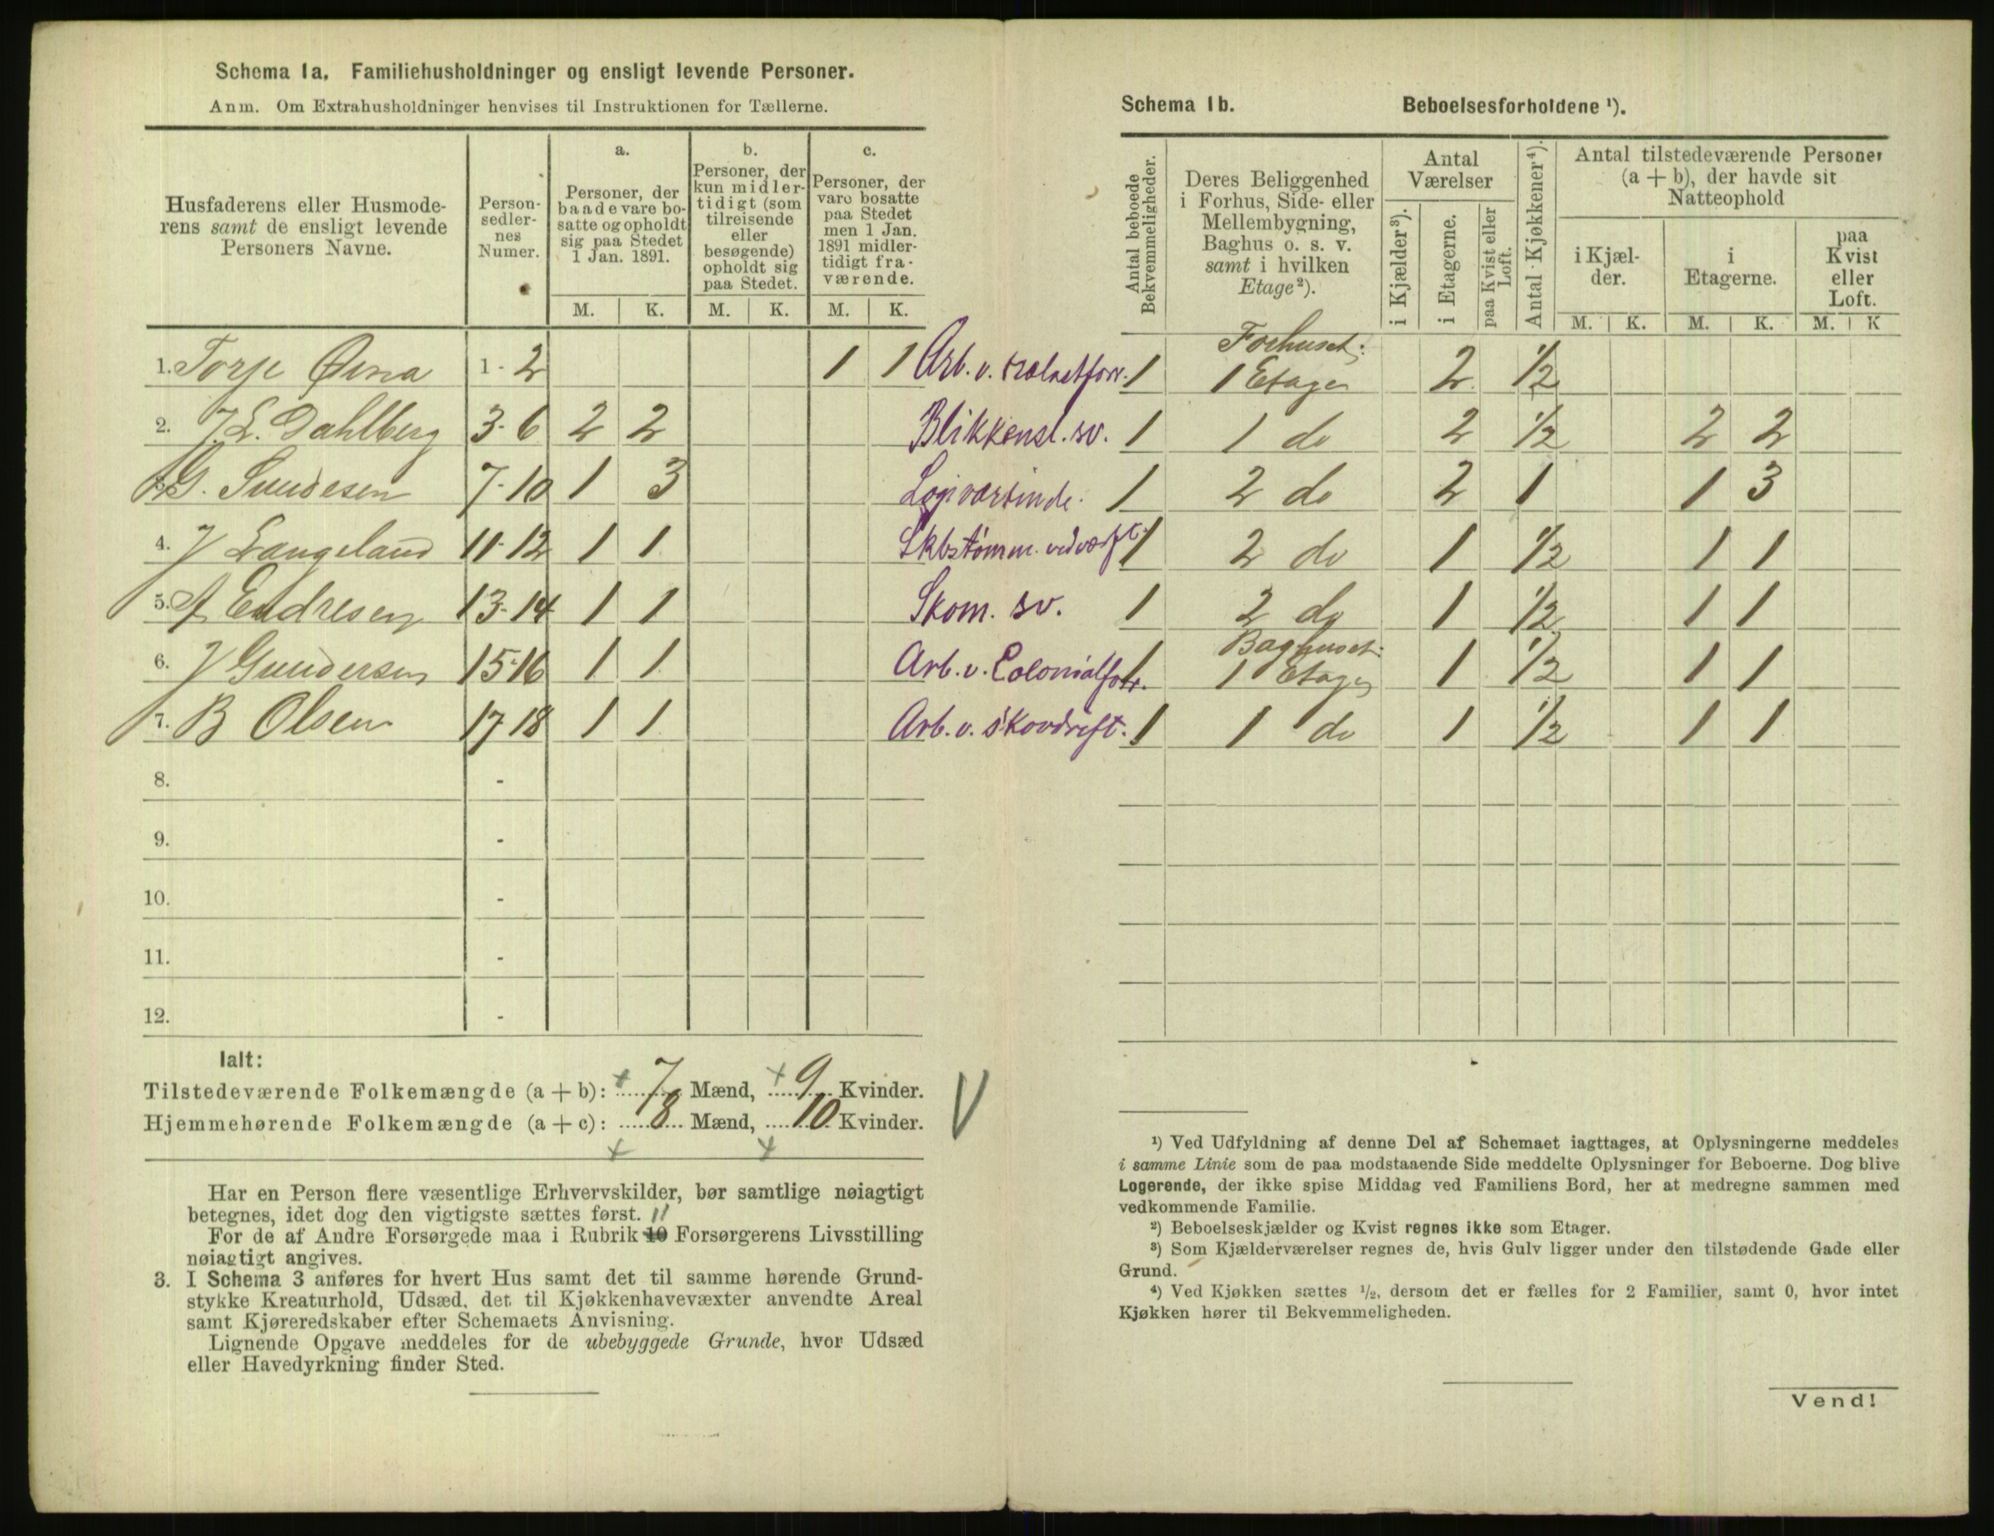 Schema 1a. Familiehusholdninger og ensligt levende Personer.
Anm. Om Extrahusholdninger henvises til Instruktionen for Tællerne.
Husfaderens eller Husmoderens samt de ensligt levende Personers Navne.
Person-sedler-nes Numer.
a. Personer, der baade vare bosatte og opholdt sig paa Stedet 1 Jan. 1891.
b. Personer, der kun midlertidigt (som tilreisende eller besøgende) opholdt sig paa Stedet.
c. Personer, der vare bosatte paa Stedet men 1 Jan. 1891 midlertidigt fraværende.
M. K. M. K. M. K.
1. Torje Øina 1-2 1 1 Arb. v.
2. J. E. Dahlberg 3-6 2 2 Blikkensl. sv.
3. G. Svendsen 7-10 1 3 Logiværtinde.
4. J Langeland 11-12 1 1 Skbstømm. ved værft.
5. A Endresen 13-14 1 1 Skom. sv.
6. J Gundersen 15-16 1 1 Arb. v. Colonialforr.
7. B Olsen 17-18 1 1 Arb. v. skovdrift.
8. -
9. -
10. -
11. -
12. -
Ialt:
Tilstedeværende Folkemængde (a + b): 7 Mænd, 9 Kvinder.
Hjemmehørende Folkemængde (a + c): 8 Mænd, 10 Kvinder.
Har en Person flere væsentlige Erhvervskilder, bør samtlige nøiagtigt
betegnes, idet dog den vigtigste sættes først. 11
For de af Andre Forsørgede maa i Rubrik 10 Forsørgerens Livsstilling
nøiagtigt angives.
3. I Schema 3 anføres for hvert Hus samt det til samme hørende Grund-
stykke Kreaturhold, Udsæd, det til Kjøkkenhavevæxter anvendte Areal
samt Kjøreredskaber efter Schemaets Anvisning.
Lignende Opgave meddeles for de ubebyggede Grunde, hvor Udsæd
eller Havedyrkning finder Sted.
Schema 1b. Beboelsesforholdene ¹).
Antal beboede Bekvemmeligheder.
Deres Beliggenhed i Forhus, Side- eller Mellembygning, Baghus o. s. v. samt i hvilken Etage²).
Antal Værelser
i Kjælder³).
i Etagerne.
paa Kvist eller Loft.
Antal Kjøkkener⁴).
Antal tilstedeværende Personer (a + b), der havde sit Natteophold
i Kjælder.
i Etagerne.
paa Kvist eller Loft.
M. K. M. K. M. K
Forhuset:
1 1 Etage 2 1/2
1 1 do 2 1/2 2 2
1 2 do 2 1 1 3
1 2 do 1 1/2 1 1
1 2 do 1 1/2 1 1
Baghuset:
1 1 Etage 1 1/2 1 1
1 1 do 1 1/2 1 1
¹) Ved Udfyldning af denne Del af Schemaet iagttages, at Oplysningerne meddeles
i samme Linie som de paa modstaaende Side meddelte Oplysninger for Beboerne. Dog blive
Logerende, der ikke spise Middag ved Familiens Bord, her at medregne sammen med
vedkommende Familie.
²) Beboelseskjælder og Kvist regnes ikke som Etager.
³) Som Kjælderværelser regnes de, hvis Gulv ligger under den tilstødende Gade eller
Grund.
⁴) Ved Kjøkken sættes ½, dersom det er fælles for 2 Familier, samt 0, hvor intet
Kjøkken hører til Bekvemmeligheden.
Vend!